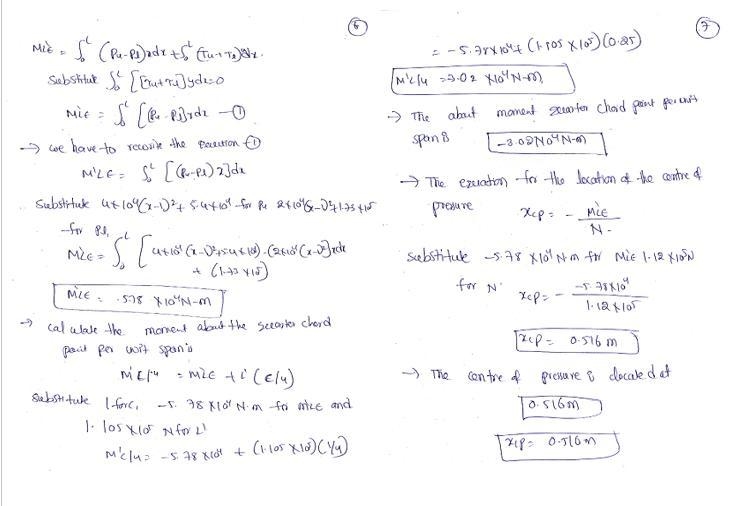 6
M'LE = ∫₀ᴸ (Pu-Pl)xdx + ∫₀ᴸ (τu+τl) ydx.
Substitute ∫₀ᴸ [[τu+τl]ydx=0
M'LE = ∫₀ᴸ [(Pu-Pl]xdx —①
→ we have to rewrite the equation ①
M'LE = ∫₀ᴸ [(Pu-Pl) x]dx
Substitute 4×10⁴(x-1)²+ 5.4×10⁴ for Pu 2×10⁴(x-1)²+1.73×10⁵
for Pl,
M'LE = ∫₀ᴸ [4×10⁴(x-1)²+5.4×10⁴)-(2×10⁴(x-1)²]xdx
+ (1.73×10⁵)
M'LE = -5.78 ×10⁴N-m
→ calculate the moment about the quarter chord
point per unit span is
M'c/4 = M'LE + L'(c/4)
Substitute 1 for c, -5.78×10⁴ N.m for M'LE and
1.105×10⁵ N for L'
M'c/4 = -5.78×10⁴ + (1.105×10⁵)(1/4)
7
= -5.78×10⁴+ (1.105×10⁵)(0.25)
M'c/4 =-3.02 ×10⁴N-m
→ The about moment quarter chord point per unit
span is -3.02×10⁴N-m
→ The equation for the location of the centre of
pressure xcp = - M'LE/N'
substitute -5.78 ×10⁴ N.m for M'LE 1.12×10⁵N
for N' xcp = - -5.78×10⁴/1.12×10⁵
xcp = 0.516 m
→ The centre of pressure is located at
0.516m
xcp = 0.516m